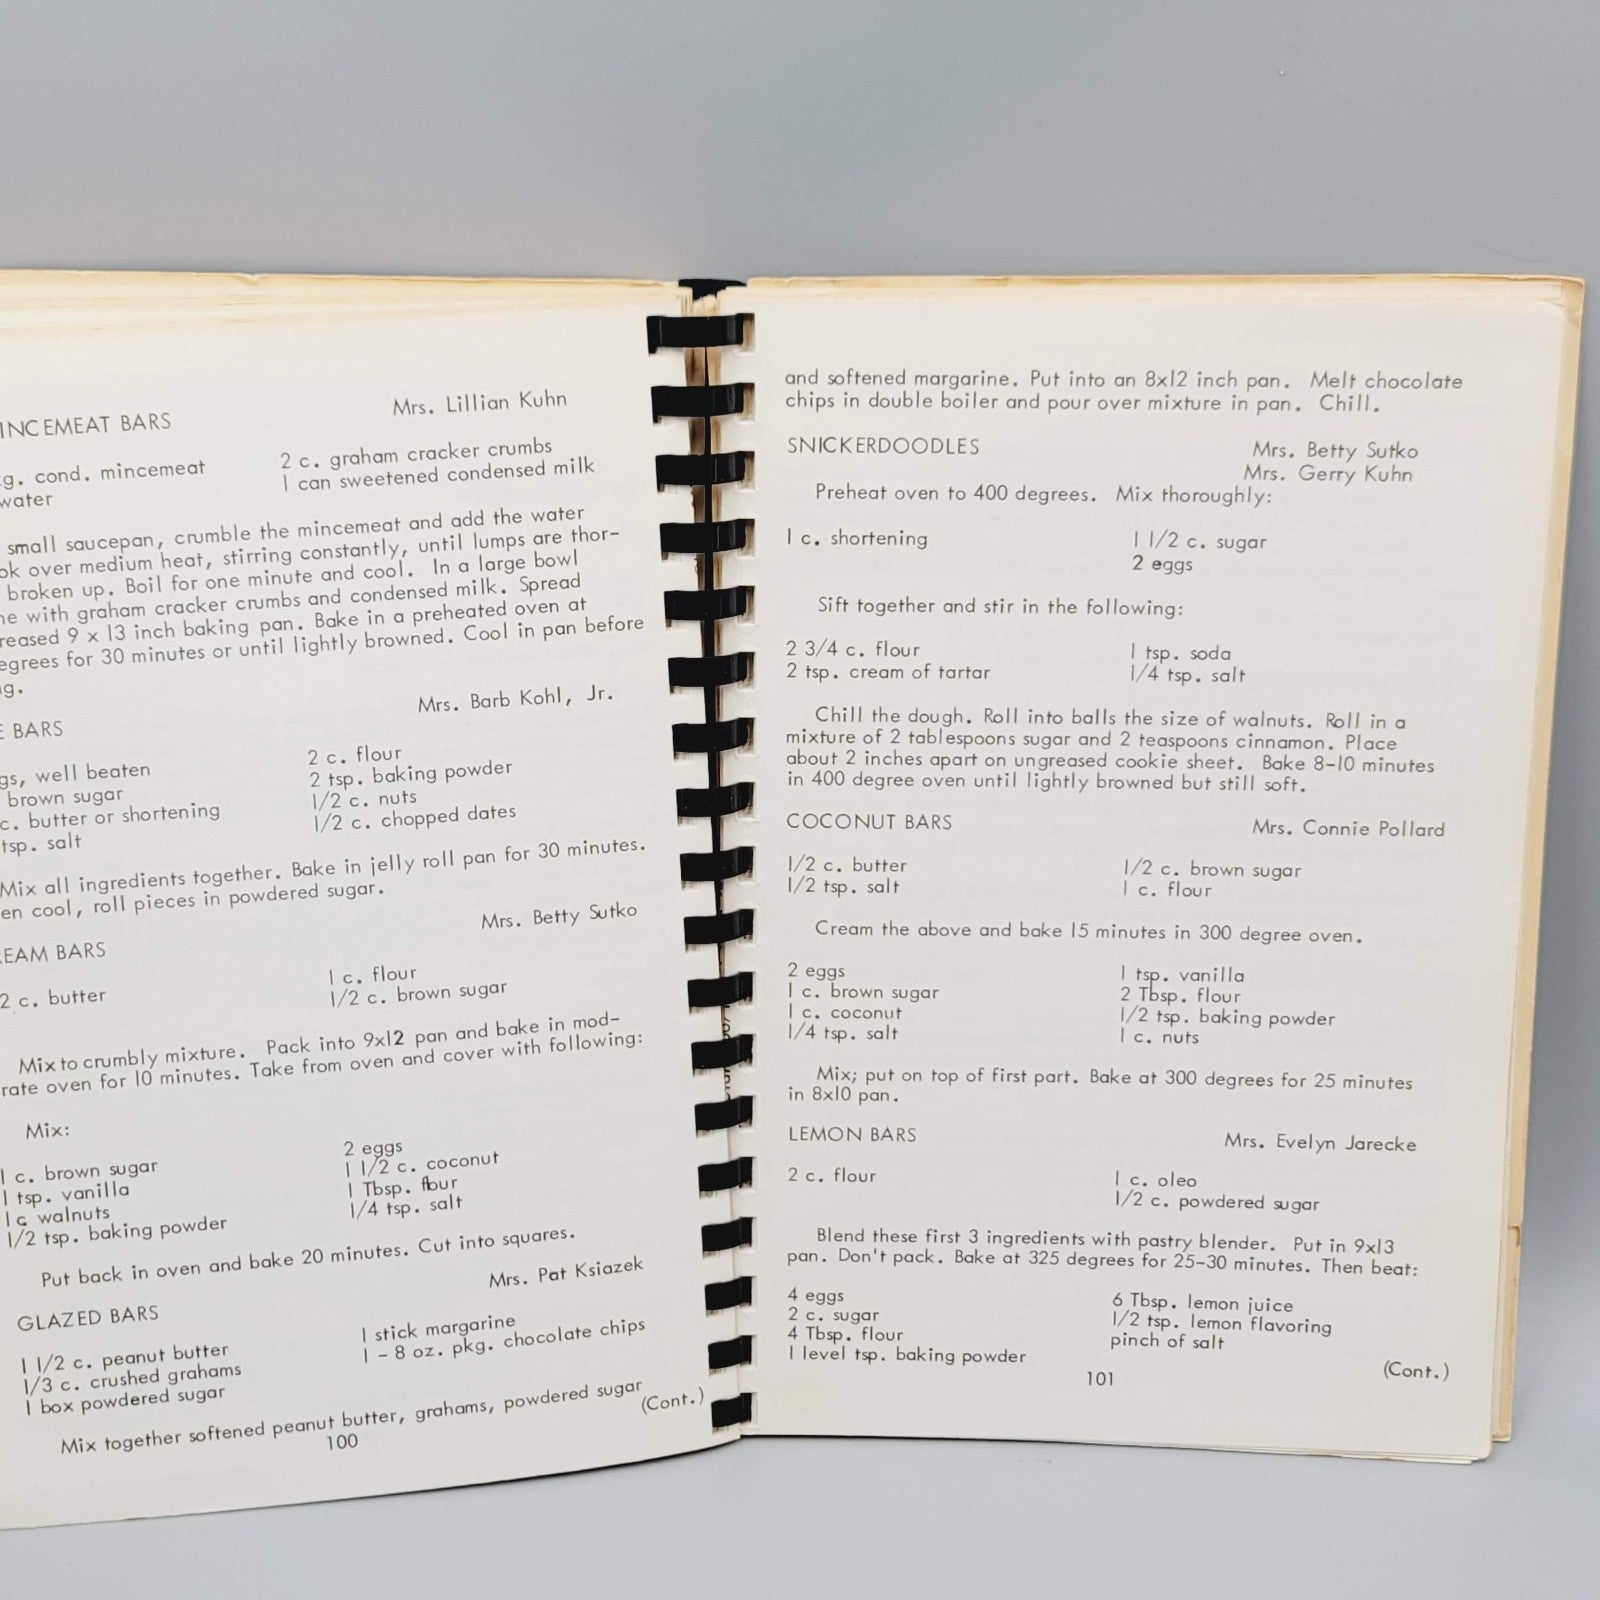 Mrs. Lillian Kuhn
INCEMEAT BARS
g. cond. mincemeat
water
2 c. graham cracker crumbs
1 can sweetened condensed milk
small saucepan, crumble the mincemeat and add the water
ok over medium heat, stirring constantly, until lumps are thor-
broken up. Boil for one minute and cool. In a large bowl
ne with graham cracker crumbs and condensed milk. Spread
reased 9 x 13 inch baking pan. Bake in a preheated oven at
egrees for 30 minutes or until lightly browned. Cool in pan before
g.
Mrs. Barb Kohl, Jr.
E BARS
gs, well beaten
brown sugar
c. butter or shortening
tsp. salt
2 c. flour
2 tsp. baking powder
1/2 c. nuts
1/2 c. chopped dates
Mix all ingredients together. Bake in jelly roll pan for 30 minutes.
en cool, roll pieces in powdered sugar.
Mrs. Betty Sutko
REAM BARS
2 c. butter
1 c. flour
1/2 c. brown sugar
Mix to crumbly mixture. Pack into 9x12 pan and bake in mod-
rate oven for 10 minutes. Take from oven and cover with following:
Mix:
1 c. brown sugar
1 tsp. vanilla
1 c walnuts
1/2 tsp. baking powder
2 eggs
1 1/2 c. coconut
1 Tbsp. flour
1/4 tsp. salt
Put back in oven and bake 20 minutes. Cut into squares.
Mrs. Pat Ksiazek
GLAZED BARS
1 1/2 c. peanut butter
1/3 c. crushed grahams
1 box powdered sugar
1 stick margarine
1 - 8 oz. pkg. chocolate chips
Mix together softened peanut butter, grahams, powdered sugar
(Cont.)
100
and softened margarine. Put into an 8x12 inch pan. Melt chocolate
chips in double boiler and pour over mixture in pan. Chill.
SNICKERDOODLES
Mrs. Betty Sutko
Mrs. Gerry Kuhn
Preheat oven to 400 degrees. Mix thoroughly:
1 c. shortening
1 1/2 c. sugar
2 eggs
Sift together and stir in the following:
2 3/4 c. flour
2 tsp. cream of tartar
1 tsp. soda
1/4 tsp. salt
Chill the dough. Roll into balls the size of walnuts. Roll in a
mixture of 2 tablespoons sugar and 2 teaspoons cinnamon. Place
about 2 inches apart on ungreased cookie sheet. Bake 8-10 minutes
in 400 degree oven until lightly browned but still soft.
COCONUT BARS
Mrs. Connie Pollard
1/2 c. butter
1/2 tsp. salt
1/2 c. brown sugar
1 c. flour
Cream the above and bake 15 minutes in 300 degree oven.
2 eggs
1 c. brown sugar
1 c. coconut
1/4 tsp. salt
1 tsp. vanilla
2 Tbsp. flour
1/2 tsp. baking powder
1 c. nuts
Mix; put on top of first part. Bake at 300 degrees for 25 minutes
in 8x10 pan.
LEMON BARS
Mrs. Evelyn Jarecke
2 c. flour
1 c. oleo
1/2 c. powdered sugar
Blend these first 3 ingredients with pastry blender. Put in 9x13
pan. Don't pack. Bake at 325 degrees for 25-30 minutes. Then beat:
4 eggs
2 c. sugar
4 Tbsp. flour
1 level tsp. baking powder
6 Tbsp. lemon juice
1/2 tsp. lemon flavoring
pinch of salt
(Cont.)
101